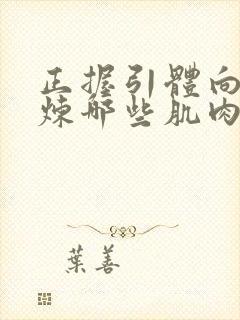 正握引體向
煉哪些肌肉
葉善